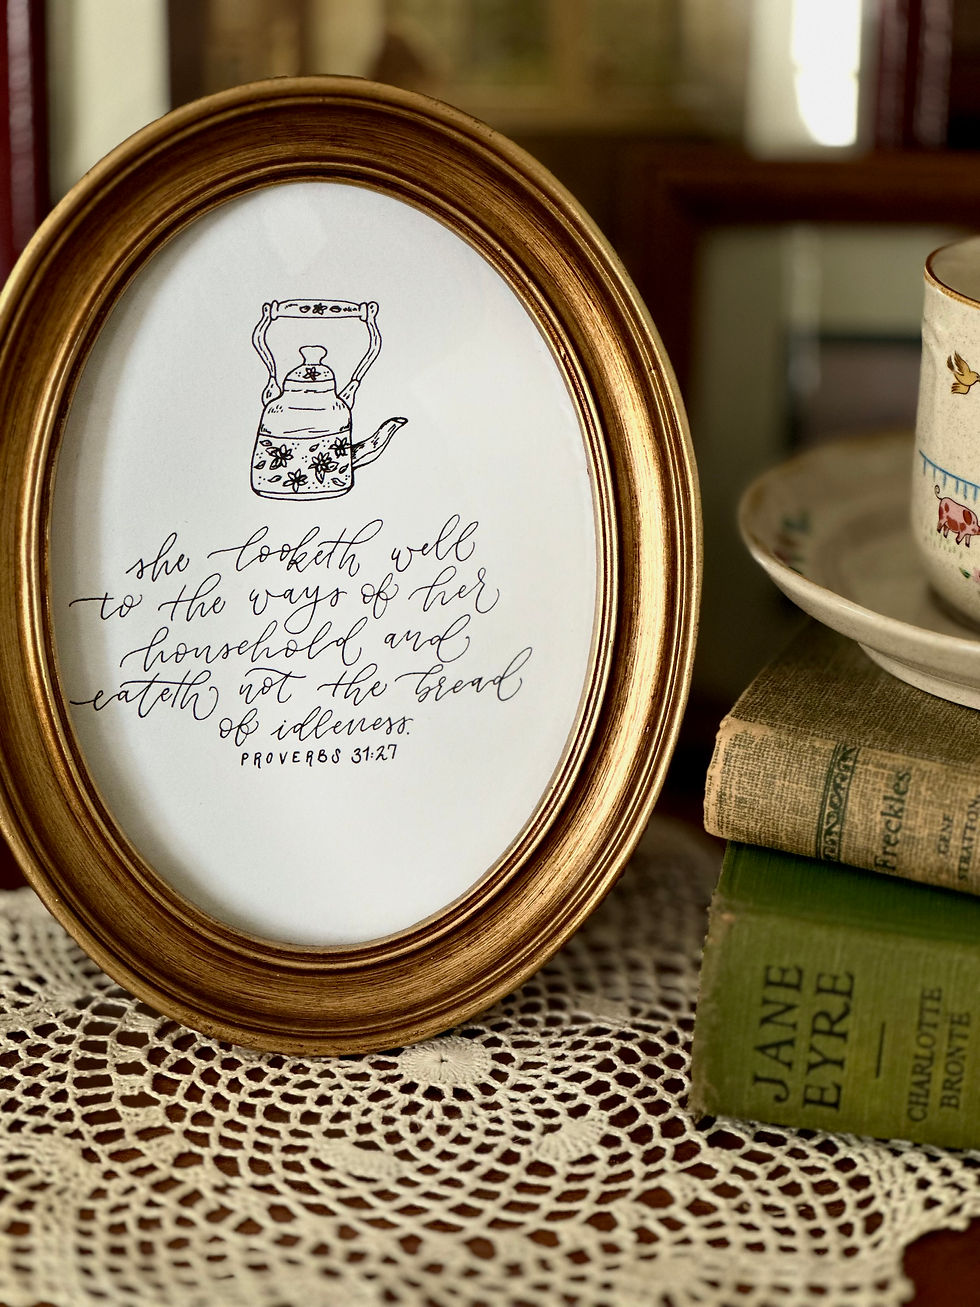 she looketh well
to the ways of her
household and
eateth not the bread
of idleness.
PROVERBS 31:27
Freckles
GENE
JANE
EYRE
CHARLOTTE
BRONTE